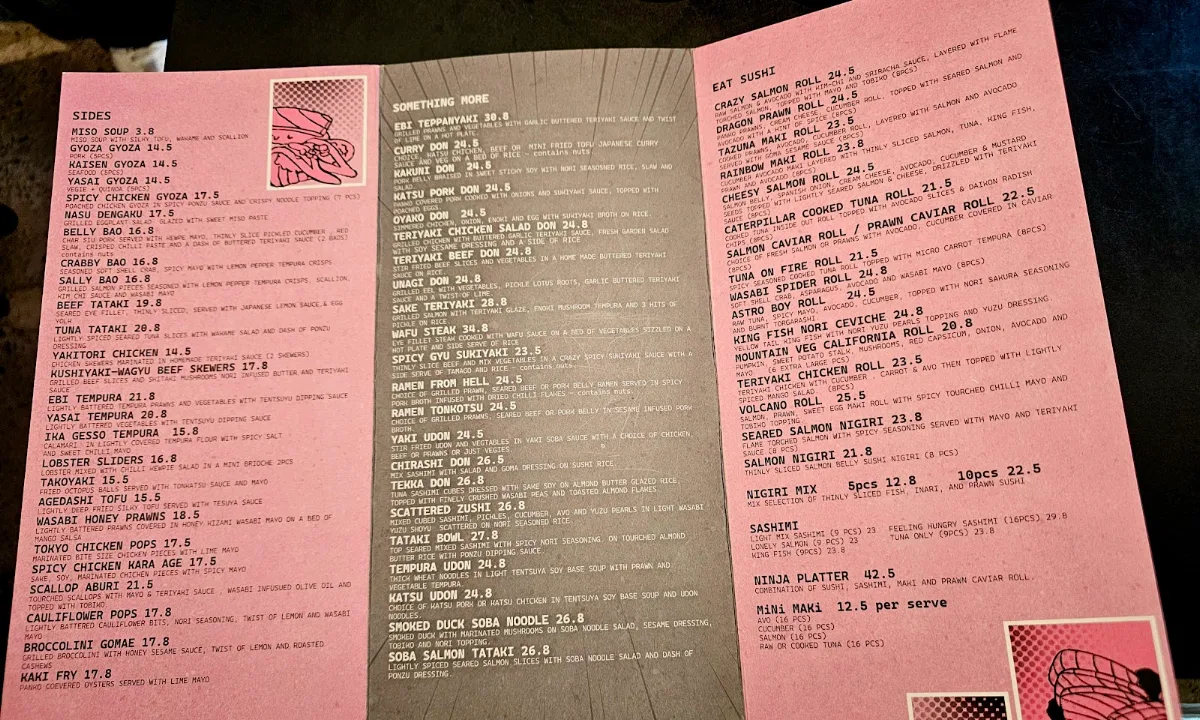 SIDES
MISO SOUP 3.8
MISO SOUP WITH SILKY TOFU, WAKAME AND SCALLION
GYOZA GYOZA 14.5
PORK (5PCS)
KAISEN GYOZA 14.5
SEAFOOD (5PCS)
YASAI GYOZA 14.5
VEGIE + QUINOA (5PCS)
SPICY CHICKEN GYOZA 17.5
POACHED CHICKEN GYOZA IN SPICY PONZU SAUCE AND CRISPY NOODLE TOPPING (7 PCS)
NASU DENGAKU 17.5
GRILLED EGGPLANT SALAD GLAZED WITH SWEET MISO PASTE
BELLY BAO 16.8
CHAR SIU PORK SERVED WITH KEWPE MAYO, THINLY SLICE PICKLED CUCUMBER , RED
SLAW, CRISPED CHILLI PASTE AND A DASH OF BUTTERED TERIYAKI SAUCE (2 BAOS)
contains nuts
CRABBY BAO 16.8
SEASONED SOFT SHELL CRAB, SPICY MAYO WITH LEMON PEPPER TEMPURA CRISPS
SALLY BAO 16.8
GRILLED SALMON PIECES SEASONED WITH LEMON PEPPER TEMPURA CRISPS, SCALLION,
KIM CHI SAUCE AND WASABI MAYO
BEEF TATAKI 19.8
SEARED EYE FILLET, THINLY SLICED, SERVED WITH JAPANESE LEMON SAUCE & EGG
YOLK
TUNA TATAKI 20.8
LIGHTLY SPICED SEARED TUNA SLICES WITH WAHAME SALAD AND DASH OF PONZU
DRESSING
YAKITORI CHICKEN 14.5
CHICKEN SKEWERS MARINATED IN HOMEMADE TERIYAKI SAUCE (2 SKEWERS)
KUSHIYAKI-WAGYU BEEF SKEWERS 17.8
GRILLED BEEF SLICES AND SHITAKI MUSHROOMS NORI INFUSED BUTTER AND TERIYAKI
SAUCE
EBI TEMPURA 21.8
LIGHTLY BATTERED TEMPURA PRAWNS AND VEGETABLES WITH TENTSUYU DIPPING SAUCE
YASAI TEMPURA 20.8
LIGHTLY BATTERED VEGETABLES WITH TENTSUYU DIPPING SAUCE
IKA GESSO TEMPURA 15.8
CALAMARI IN LIGHTLY COVERED TEMPURA FLOUR WITH SPICY SALT
AND SWEET CHILLI MAYO
LOBSTER SLIDERS 16.8
LOBSTER MIXED WITH CHILLI KEWPIE SALAD IN A MINI BRIOCHE 2PCS
TAKOYAKI 15.5
FRIED OCTOPUS BALLS SERVED WITH TONKATSU SAUCE AND MAYO
AGEDASHI TOFU 15.5
LIGHTLY DEEP FRIED SILKY TOFU SERVED WITH TESUYA SAUCE
WASABI HONEY PRAWNS 18.5
LIGHTLY BATTERED PRAWNS COVERED IN HONEY HIZAMI WASABI MAYO ON A BED OF
MANGO SALSA
TOKYO CHICKEN POPS 17.5
MARINATED BITE SIZE CHICKEN PIECES WITH LIME MAYO
SPICY CHICKEN KARA AGE 17.5
SAKE, SOY, MARINATED CHICKEN PIECES WITH SPICY MAYO
SCALLOP ABURI 21.5
TOURCHED SCALLOPS WITH MAYO & TERIYAKI SAUCE . WASABI INFUSED OLIVE OIL AND
TOPPED WITH TOBIKO
CAULIFLOWER POPS 17.8
LIGHTLY BATTERED CAULIFLOWER BITS, NORI SEASONING, TWIST OF LEMON AND WASABI
MAYO
BROCCOLINI GOMAE 17.8
GRILLED BROCCOLINI WITH HONEY SESAME SAUCE, TWIST OF LEMON AND ROASTED
CASHEWS
KAKI FRY 17.8
PANKO COEVERED OYSTERS SERVED WITH LIME MAYO
SOMETHING MORE
EBI TEPPANYAKI 30.8
GRILLED PRAWNS AND VEGETABLES WITH GARLIC BUTTERED TERIYAKI SAUCE AND TWIST
OF LIME ON A HOT PLATE.
CURRY DON 24.5
CHOICE, KATSU CHICKEN, BEEF OR MINI FRIED TOFU JAPANESE CURRY
SAUCE AND VEG ON A BED OF RICE - contains nuts.
KAKUNI DON 24.5
PORK BELLY BRAISED IN SWEET STICKY SOY WITH NORI SEASONED RICE, SLAW AND
SALAD.
KATSU PORK DON 24.5
PANKO COVERED PORK COOKED WITH ONIONS AND SUKIYAKI SAUCE, TOPPED WITH
POACHED EGGS
OYAKO DON 24.5
SIMMERED CHICKEN, ONION, ENOKI AND EGG WITH SUKIYAKI BROTH ON RICE.
TERIYAKI CHICKEN SALAD DON 24.8
GRILLED CHICKEN WITH BUTTERED GARLIC TERIYAKI SAUCE, FRESH GARDEN SALAD
WITH SOY SESAME DRESSING AND A SIDE OF RICE
TERIYAKI BEEF DON 24.8
STIR FRIED BEEF SLICES AND VEGETABLES IN A HOME MADE BUTTERED TERIYAKI
SAUCE ON RICE.
UNAGI DON 24.8
GRILLED EEL WITH VEGETABLES, PICKLE LOTUS ROOTS, GARLIC BUTTERED TERIYAKI
SAUCE AND A TWIST OF LIME.
SAKE TERIYAKI 28.8
GRILLED SALMON WITH TERIYAKI GLAZE, ENOKI MUSHROOM TEMPURA AND 3 HITS OF
PICKLE ON RICE.
WAFU STEAK 34.8
EYE FILLET STEAK COOKED WITH WAFU SAUCE ON A BED OF VEGETABLES SIZZLED ON A
HOT PLATE AND SIDE SERVE OF RICE
SPICY GYU SUKIYAKI 23.5
THINLY SLICE BEEF AND MIX VEGETABLES IN A CRAZY SPICY SUKIYAKI SAUCE WITH A
SIDE SERVE OF TAMAGO AND RICE - contains nuts.
RAMEN FROM HELL 24.5
CHOICE OF GRILLED PRAWN, SEARED BEEF OR PORK BELLY RAMEN SERVED IN SPICY
PORK BROTH INFUSED WITH DRIED CHILLI FLAKES - contains nuts.
RAMEN TONKOTSU 24.5
CHOICE OF GRILLED PRAWNS, SEARED BEEF OR PORK BELLY IN SESAME INFUSED PORK
BROTH.
YAKI UDON 24.5
STIR FRIED UDON AND VEGTABLES IN YAKI SOBA SAUCE WITH A CHOICE OF CHICKEN,
BEEF OR PRAWNS OR JUST VEGIES.
CHIRASHI DON 26.5
MIX SASHIMI WITH SALAD AND GOMA DRESSING ON SUSHI RICE.
TEKKA DON 26.5
TUNA SASHIMI CUBES DRESSED WITH SAME SOY ON ALMOND BUTTER GLAZED RICE,
TOPPED WITH FINELY CRUSHED WASABI PEAS AND TOASTED ALMOND FLAKES.
SCATTERED ZUSHI 26.8
MIXED CUBED SASHIMI, PICKLES, CUCUMBER, AVO AND YUZU PEARLS IN LIGHT WASABI
YUZU SHOYU SCATTERED ON NORI SEASONED RICE.
TATAKI BOWL 27.8
TOP SEARED MIXED SASHIMI WITH SPICY NORI SEASONING. ON TOURCHED ALMOND
BUTTER RICE WITH PONZU DIPPING SAUCE.
TEMPURA UDON 24.8
THICK WHEAT NOODLES IN LIGHT TENTSUYA SOY BASE SOUP WITH PRAWN AND
VEGETABLE TEMPURA.
KATSU UDON 24.8
CHOICE OF KATSU PORK OR KATSU CHICKEN IN TENTSUYA SOY BASE SOUP AND UDON
NOODLES
SMOKED DUCK SOBA NOODLE 26.8
SMOKED DUCK WITH MARINATED MUSHROOMS ON SOBA NOODLE SALAD, SESAME DRESSING,
TOBIKO AND NORI TOPPING.
SOBA SALMON TATAKI 26.8
LIGHTLY SPICED SEARED SALMON SLICES WITH SOBA NOODLE SALAD AND DASH OF
PONZU DRESSING.
EAT SUSHI
CRAZY SALMON ROLL 24.5
RAW SALMON & AVOCADO WITH KIM-CHI AND SRIRACHA SAUCE, LAYERED WITH FLAME
TORCHED SALMON, TOPPED WITH MAYO AND TOBIKO (8PCS)
DRAGON PRAWN ROLL 24.5
PANKO PRAWNS, CREAM CHEESE, CUCUMBER ROLL, TOPPED WITH SEARED SALMON AND
AVOCADO WITH A HINT OF SPICE (8PCS)
TAZUNA MAKI ROLL 23.5
COOKED PRAWNS, AVOCADO, CUCUMBER ROLL, LAYERED WITH SALMON AND AVOCADO
SERVED WITH GOMA SESAME SAUCE (8PCS)
RAINBOW MAKI ROLL 23.8
CUCUMBER AVOCADO MAKI LAYERED WITH THINLY SLICED SALMON, TUNA, KING FISH,
PRAWN AND AVOCADO (8PCS)
CHEESY SALMON ROLL 24.5
SALMON BELLY, SPANISH ONION, CREAM CHEESE, AVOCADO, CUCUMBER & MUSTARD
SEEDS TOPPED WITH LIGHTLY SEARED SALMON & CHEESE, DRIZZLED WITH TERIYAKI
SAUCE (8PCS)
CATERPILLAR COOKED TUNA ROLL 21.5
COOKED TUNA INSIDE OUT ROLL TOPPED WITH AVOCADO SLICES & DAIKON RADISH
CHIPS (8PCS)
SALMON CAVIAR ROLL / PRAWN CAVIAR ROLL 22.5
CHOICE OF FRESH SALMON OR PRAWNS WITH AVOCADO, CUCUMBER COVERED IN CAVIAR
(8PCS)
TUNA ON FIRE ROLL 21.5
SPICY SEASONED COOKED TUNA ROLL TOPPED WITH MICRO CARROT TEMPURA (8PCS)
WASABI SPIDER ROLL 24.8
SOFT SHELL CRAB, ASPARAGUS, AVOCADO AND WASABI MAYO (8PCS)
ASTRO BOY ROLL 24.5
RAW TUNA, SPICY MAYO, AVOCADO, CUCUMBER, TOPPED WITH NORI SAKURA SEASONING
AND BURNT TORGARASHI
KING FISH NORI CEVICHE 24.8
YELLOW TAIL KING FISH WITH NORI YUZU PEARLS TOPPING AND YUZU DRESSING.
MOUNTAIN VEG CALIFORNIA ROLL 20.8
PUMPKIN, SWEET POTATO STALK, MUSHROOMS, RED CAPSICUM, ONION, AVOCADO AND
MAYO (6 EXTRA LARGE PCS)
TERIYAKI CHICKEN ROLL 23.5
TERIYAKI CHICKEN WITH CUCUMBER , CARROT & AVO THEN TOPPED WITH LIGHTLY
SPICED MANGO SALAD (8PCS)
VOLCANO ROLL 25.5
SALMON, PRAWN, SWEET EGG MAKI ROLL WITH SPICY TOURCHED CHILLI MAYO AND
TOBIKO TOPPING
SEARED SALMON NIGIRI 23.8
FLAME TORCHED SALMON WITH SPICY SEASONING SERVED WITH MAYO AND TERIYAKI
SAUCE (8 PCS)
SALMON NIGIRI 21.8
THINLY SLICED SALMON BELLY SUSHI NIGIRI (8 PCS)
NIGIRI MIX 5pcs 12.8 10pcs 22.5
MIX SELECTION OF THINLY SLICED FISH, INARI, AND PRAWN SUSHI
SASHIMI
LIGHT MIX SASHIMI (9 PCS) 23 FEELING HUNGRY SASHIMI (16PCS) 29.8
LONELY SALMON (9 PCS) 23 TUNA ONLY (9PCS) 23.8
KING FISH (9PCS) 23.8
NINJA PLATTER 42.5
COMBINATION OF SUSHI, SASHIMI, MAKI AND PRAWN CAVIAR ROLL.
MiNi MAKi 12.5 per serve
AVO (16 PCS)
CUCUMBER (16 PCS)
SALMON (16 PCS)
RAW OR COOKED TUNA (16 PCS)